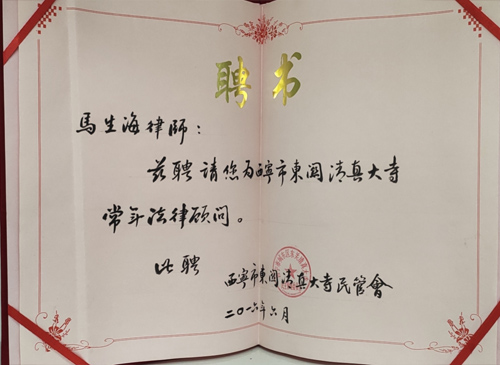 聘书
馬生海律師：
兹聘請您为西寧市東関清真大寺
常年法律顾问。
此聘
西寧市東関清真大寺民管會
二〇一六年六月